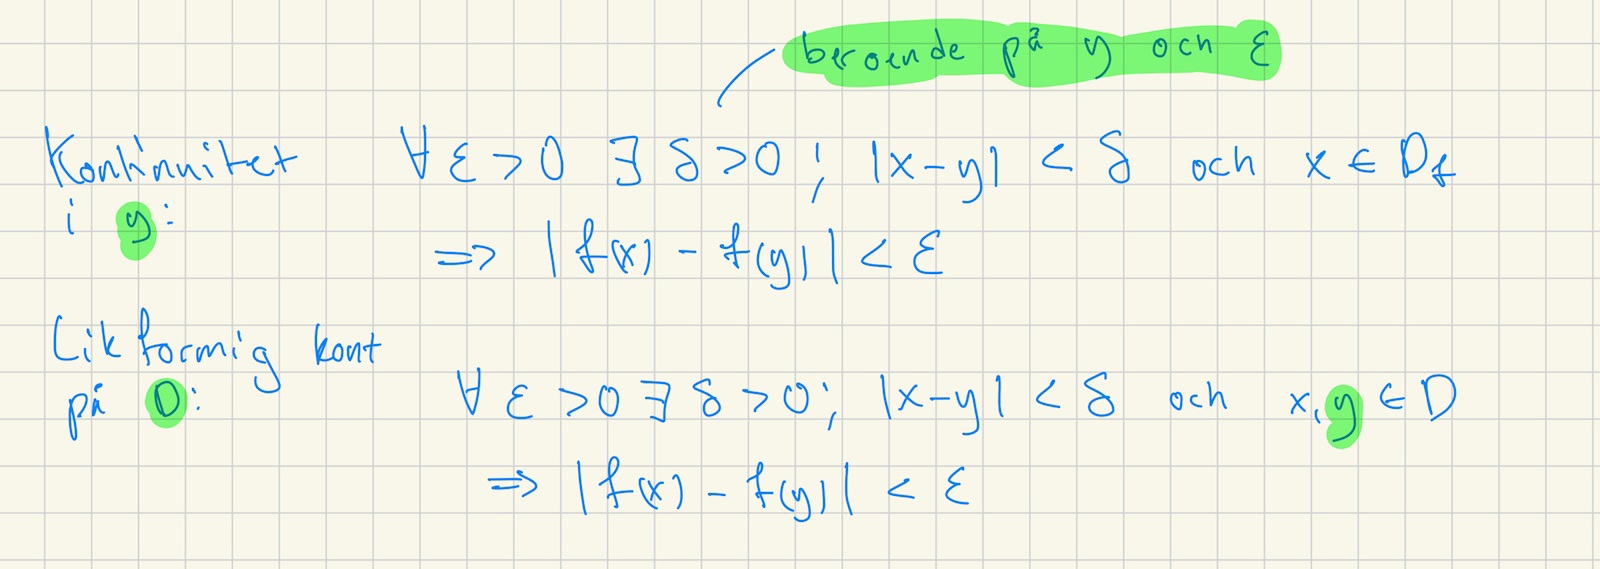 beroende på y och ε
Kontinuitet ∀ ε > 0 ∃ δ > 0 ; |x-y| < δ och x ∈ D_f
i y:
=> |f(x) - f(y)| < ε
Likformig kont
på D: ∀ ε > 0 ∃ δ > 0; |x-y| < δ och x,y ∈ D
=> |f(x) - f(y)| < ε